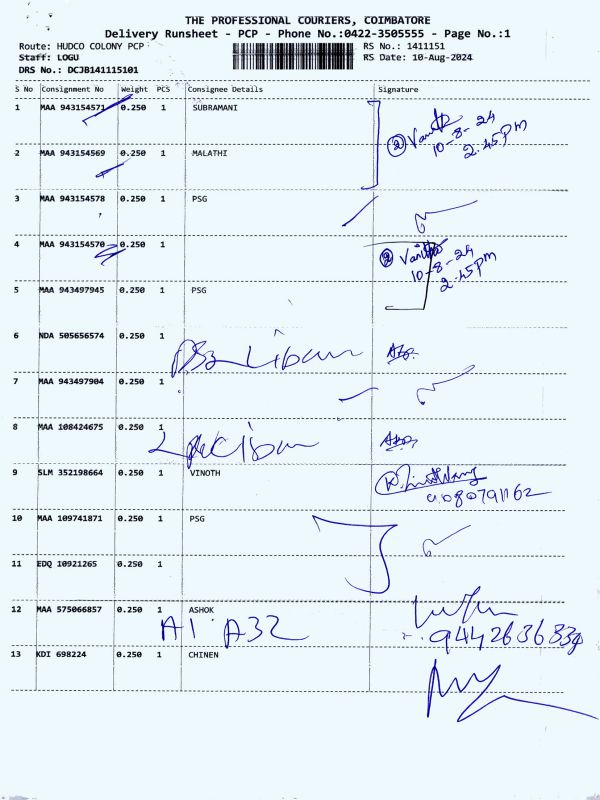 THE PROFESSIONAL COURIERS, COIMBATORE
Delivery Runsheet - PCP - Phone No.:0422-3505555 - Page No.:1
Route: HUDCO COLONY PCP RS No.: 1411151
Staff: LOGU RS Date: 10-Aug-2024
DRS No.: DCJB141115101
S No Consignment No Weight PCS Consignee Details Signature
1 MAA 943154571 0.250 1 SUBRAMANI
2 10-8-24
2.45pm
2 MAA 943154569 0.250 1 MALATHI
3 MAA 943154578 0.250 1 PSG
4 MAA 943154570 0.250 1
2 10-8-24
2.45pm
5 MAA 943497945 0.250 1 PSG
6 NDA 505656574 0.250 1
7 MAA 943497904 0.250 1
8 MAA 108424675 0.250 1
9 SLM 352198664 0.250 1 VINOTH
10 MAA 109741871 0.250 1 PSG
11 EDQ 10921265 0.250 1
12 MAA 575066857 0.250 1 ASHOK
A1 A32
13 KDI 698224 0.250 1 CHINEN